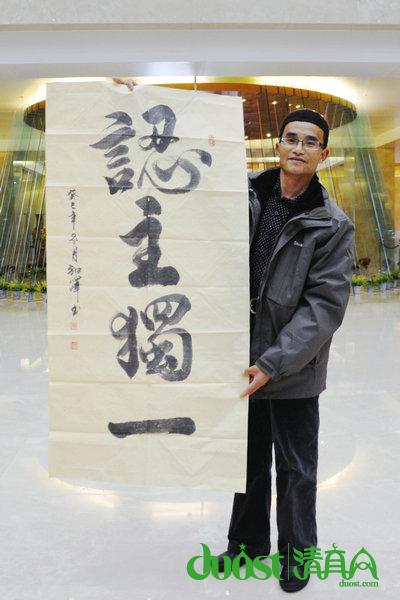 認主獨一
癸巳年冬月
duost 清真网
duost.com